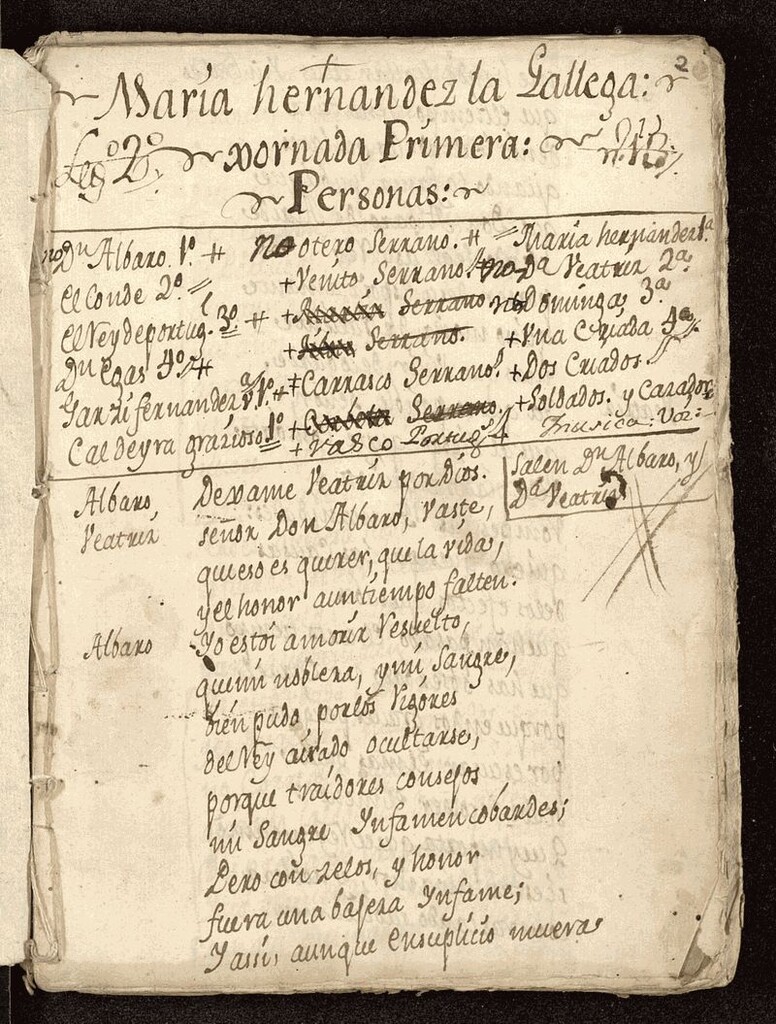 2
María hernandez la Gallega:
Lego 2º xornada Primera:
Personas:
no Dn Albaro. 1º # no otero Serrano. # = María hernandez 1ª
el Conde 2º = + Venito Serrano. no Dª Veatriz 2ª
el Rey de portugl 3º # + Serrano no Dominga 3ª
Dn egas 4º # + Serrano. + Vna Criada 4ª
Garzi fernandez # + Carrasco Serrano. + Dos Criados.
Caldeyra grazioso 1º = + Serrano. + Soldados. y Cazadores
+ Vasco Portugs Musica: Voz:
Salen Dn Albaro, y
Dª Veatriz
Albaro, Dexame Veatriz por Dios.
Veatriz señor Don Albaro, vaste,
que eso es querer, que la vida,
y el honor aun tiempo falten.
Albaro Yo estoi a morir Resuelto,
que mi nobleza, y mi Sangre,
bien pudo por los Rigores
del Rey airado ocultarse,
porque traidores consejos
mi Sangre Ynfamen cobardes;
Pero con zelos, y honor
fuera una bajeza Ynfame;
Y assi, aunque en suplicio muera